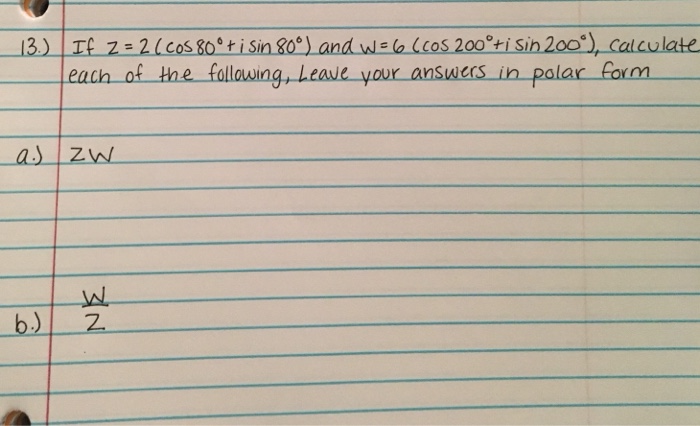 13.) If z = 2 (cos 80° + i sin 80°) and w = 6 (cos 200° + i sin 200°), calculate
each of the following, Leave your answers in polar form
a.) ZW
b.) W/Z